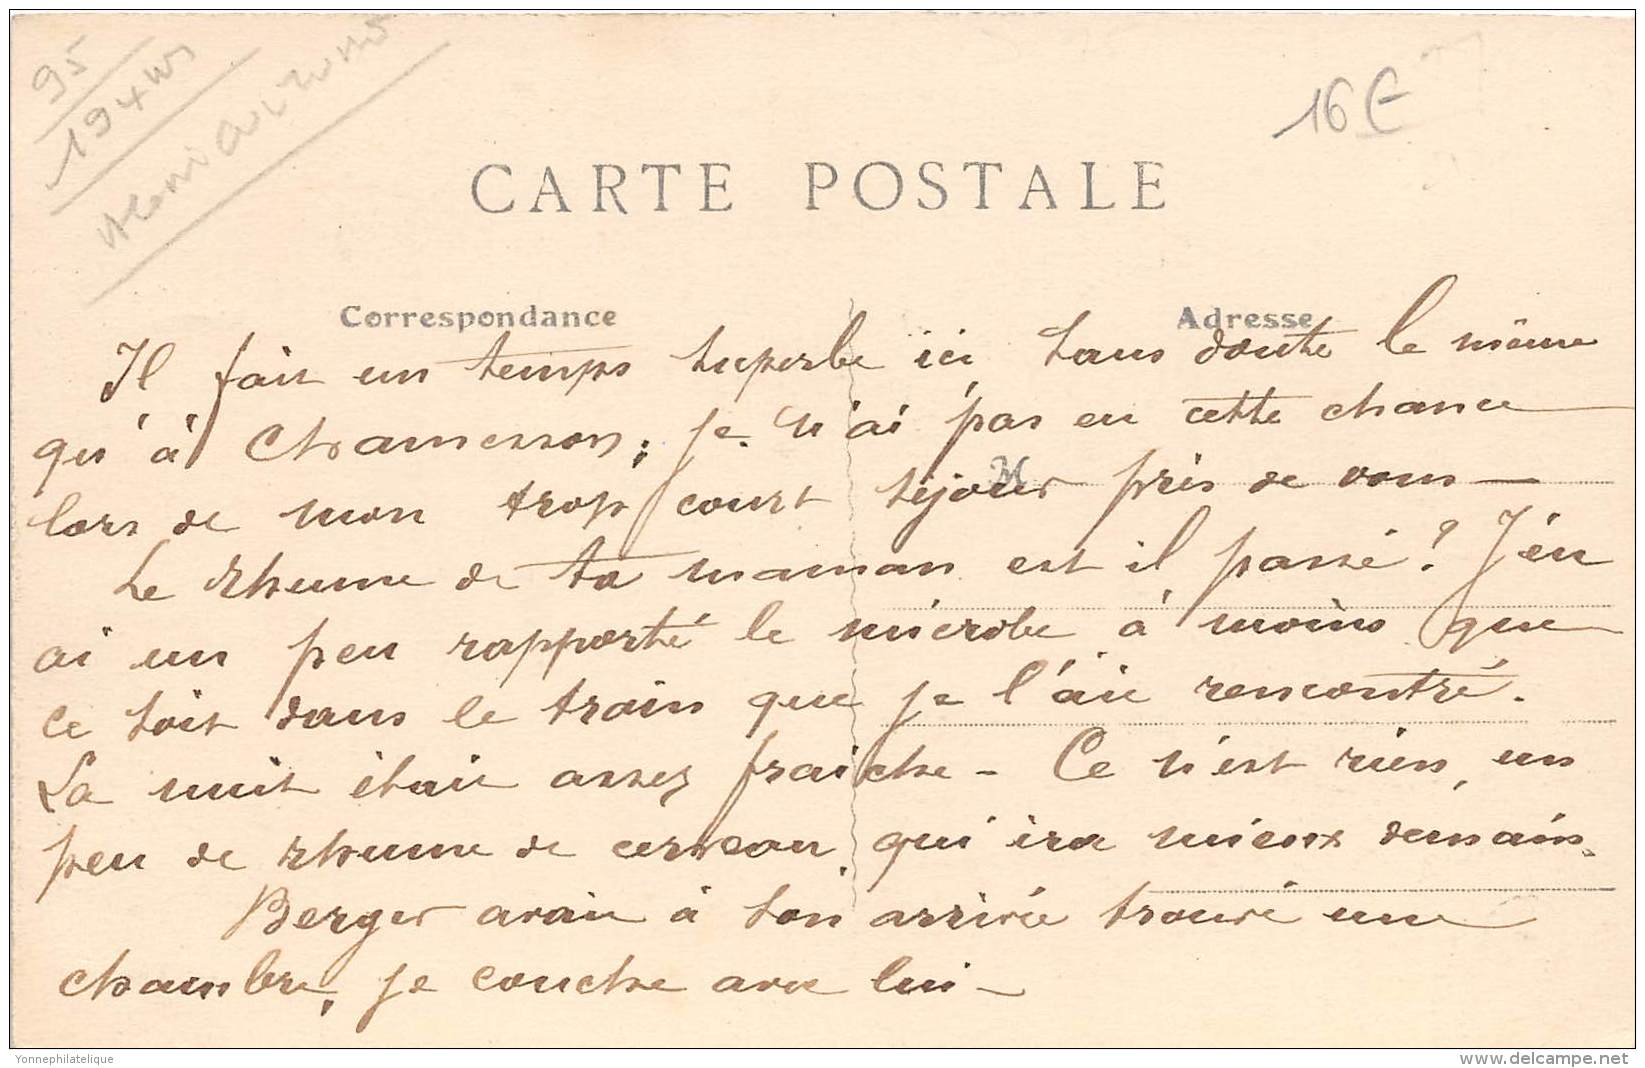 95
194
16€
CARTE POSTALE
Correspondance
Adresse
Il fait un temps superbe ici sans doute le même
qu'à Chamesson; je n'ai pas eu cette chance
M
lors de mon trop court séjour près de vous —
Le rhume de ta maman est il passé? J'en
ai un peu rapporté le microbe à moins que
ce soit dans le train que je l'aie rencontré.
La nuit était assez fraiche — Ce n'est rien, un
peu de rhume de cerveau, qui ira mieux demain.
Berger avait à son arrivée trouvé une
chambre, je couche avec lui —
Yonnephilatelique
delcampe.net